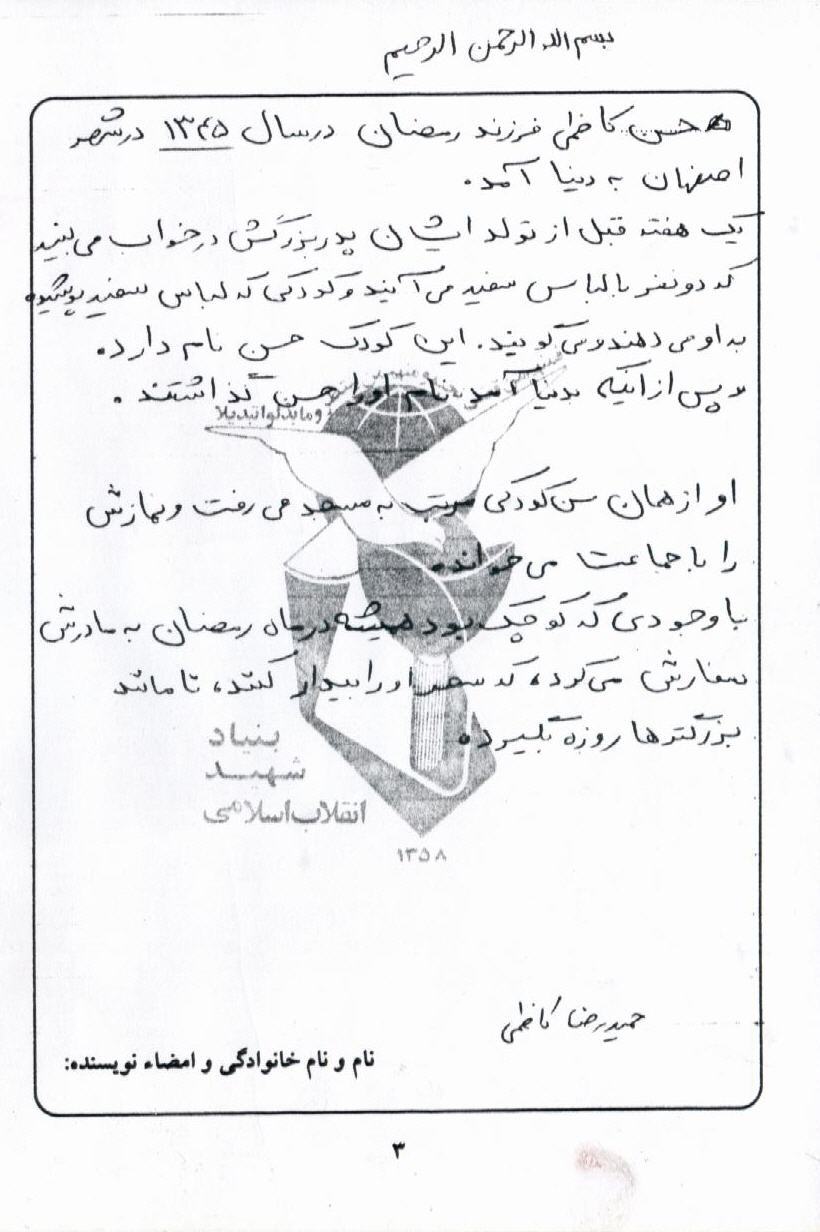 بسم الله الرحمن الرحیم
حسن کاظمی فرزند رمضان در سال ۱۳۴۵ در شهر
اصفهان به دنیا آمد.
یک هفته قبل از تولد ایشان پدربزرگش در خواب می بیند
که دو نفر با لباس سفید می آیند و کودکی که لباس سفید پوشیده
به او می دهند و می گویند. این کودک حسن نام دارد.
و پس از اینکه بدنیا آمد نام او را حسن گذاشتند.
وما بدلوا تبدیلا
او از همان سن کودکی مرتب به مسجد می رفت و نمازش
را با جماعت می خواند.
با وجودی که کوچک بود همیشه در ماه رمضان به مادرش
سفارش می کرد، که سحر او را بیدار کنند، تا مانند
بزرگترها روزه بگیرد.
بنیاد
شهید
انقلاب اسلامی
۱۳۵۸
حمیدرضا کاظمی
نام و نام خانوادگی و امضاء نویسنده:
۳